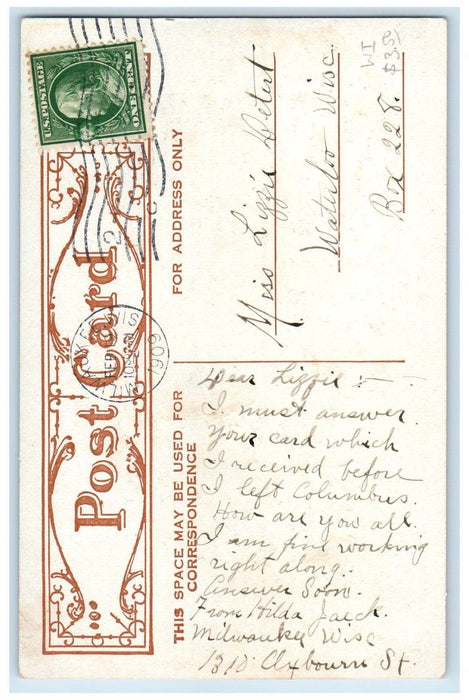 U.S. POSTAGE
ONE CENT
WI
$3.50
Post Card
FOR ADDRESS ONLY
Miss Lizzie Detert
Waterloo Wisc.
Box 228.
MILWAUKEE, WIS.
FEB
1909
THIS SPACE MAY BE USED FOR
CORRESPONDENCE
Dear Lizzie :-
I must answer
your card which
I received before
I left Columbus.
How are you all.
I am fine working
right along.
Answer Soon.
From Hilda Jaeck.
Milwaukee Wisc
1310 St.